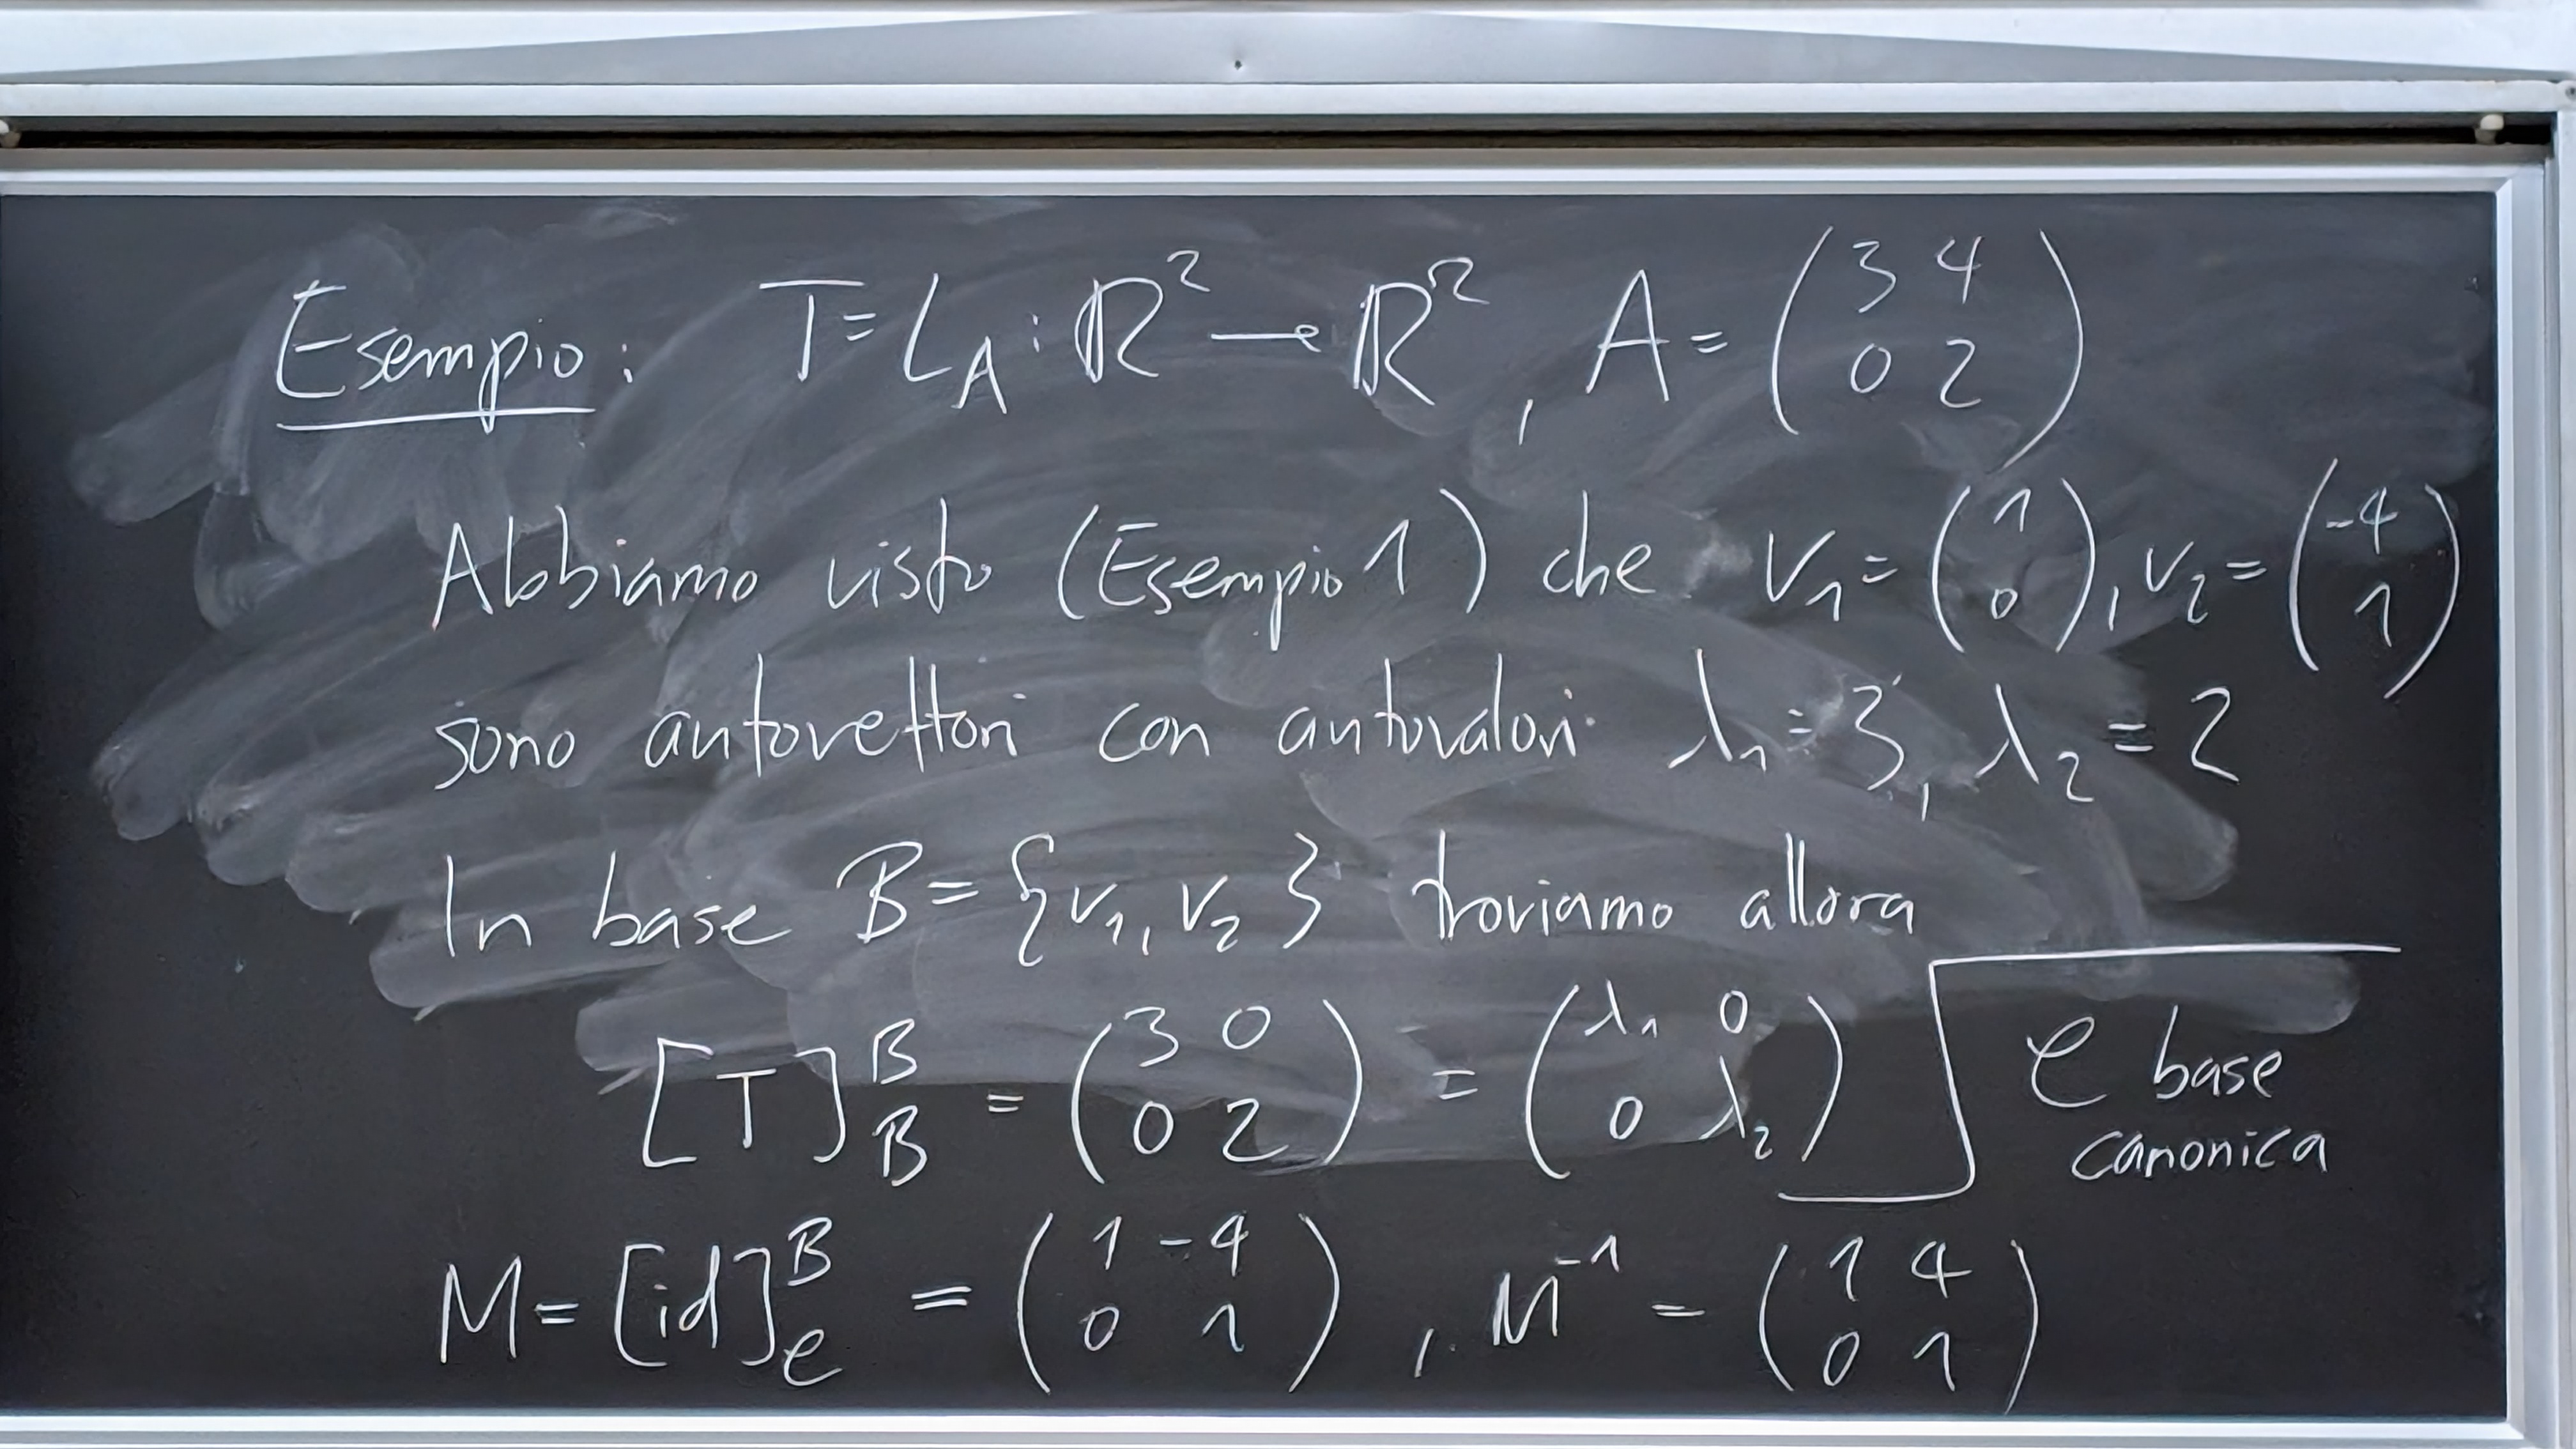 Esempio: T = L_A : ℝ² → ℝ², A = (3 4; 0 2)
Abbiamo visto (Esempio 1) che v₁ = (1; 0), v₂ = (-4; 1)
sono autovettori con autovalori λ₁ = 3, λ₂ = 2
In base B = {v₁, v₂} troviamo allora
[T]^B_B = (3 0; 0 2) = (λ₁ 0; 0 λ₂)
e base
canonica
M = [id]^B_e = (1 -4; 0 1), M⁻¹ = (1 4; 0 1)